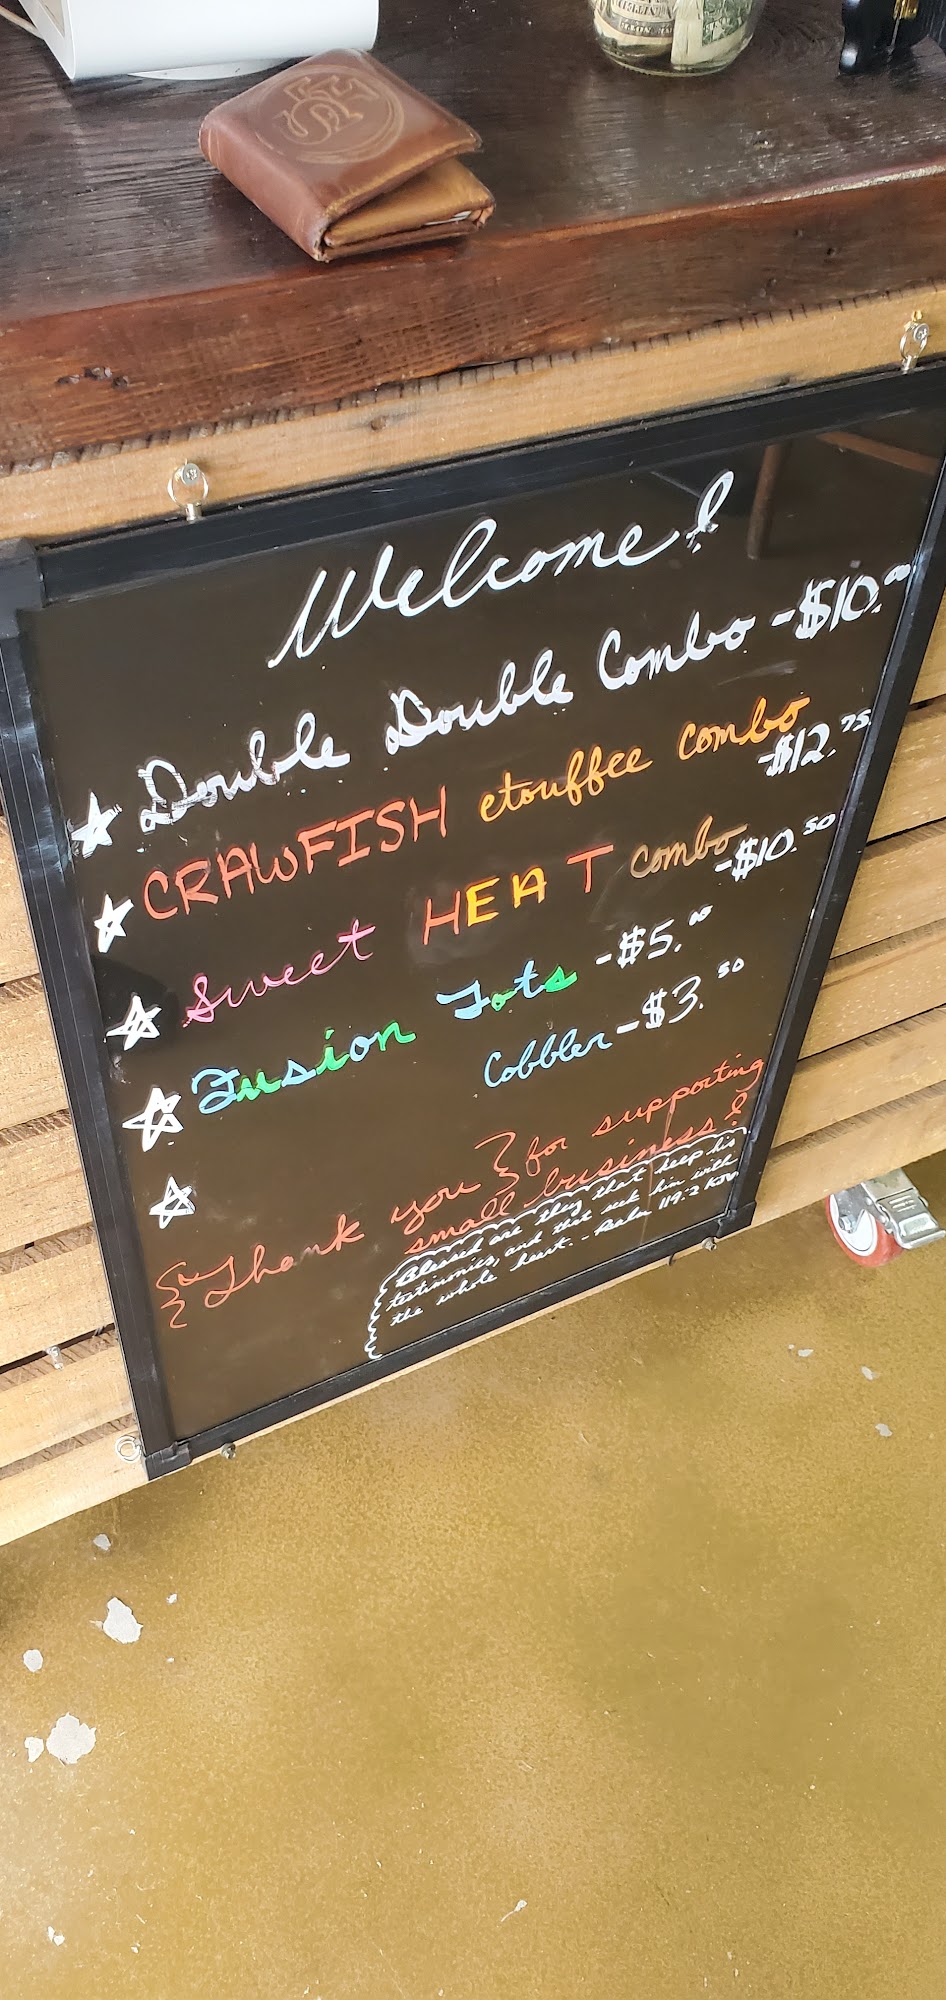 Welcome!
★ Double Double Combo - $10.00
★ CRAWFISH etouffee combo
- $12.75
★ Sweet HEAT combo - $10.50
★ Fusion Tots - $5.00
★ Cobbler - $3.50
{Thank you} for supporting
small business!
Blessed are they that keep his
testimonies, and that seek him with
the whole heart. - Psalm 119:2 KJV